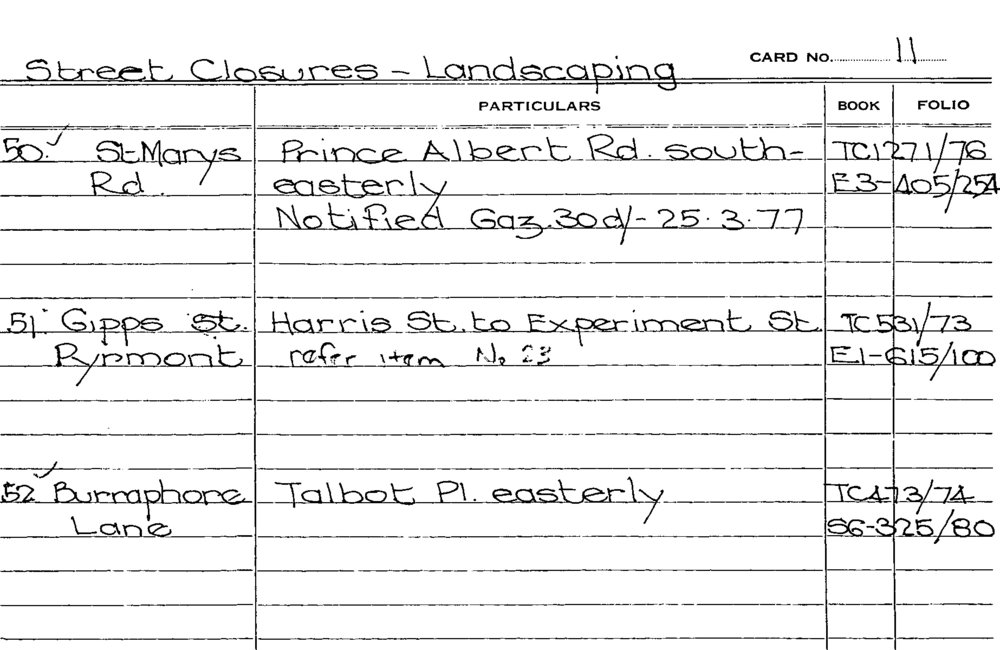 Street Closures - Landscaping CARD NO. 11
PARTICULARS BOOK FOLIO
50. St Marys Prince Albert Rd. south- TC1271/76
Rd. easterly E3-405/254
Notified Gaz. 30d/- 25.3.77
51. Gipps St. Harris St. to Experiment St. TC531/73
Pyrmont refer item No 23 E1-615/100
52 Burraphore Talbot Pl. easterly TC473/74
Lane S6-325/80